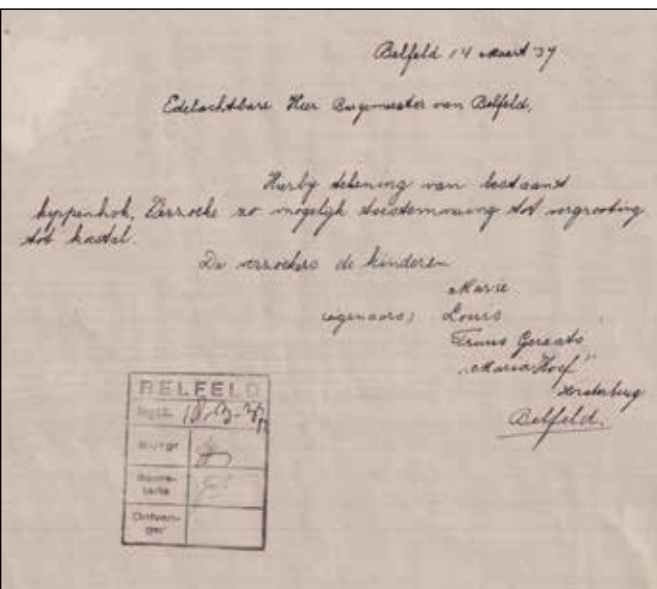 Belfeld 14 Maart 37
Edelachtbare Heer Burgemeester van Belfeld,
Hierby tekening van bestaant
kyppenhok, Verzoeke zo mogelijk toestemming tot vergrooting
tot
De verzoekers de kinderen
Marie
eigenaars; Louis
Frans Geraats
"Maria Hoef"
Belfeld.
BELFELD
Burgr
Secre-
tarie
Ontvan-
ger